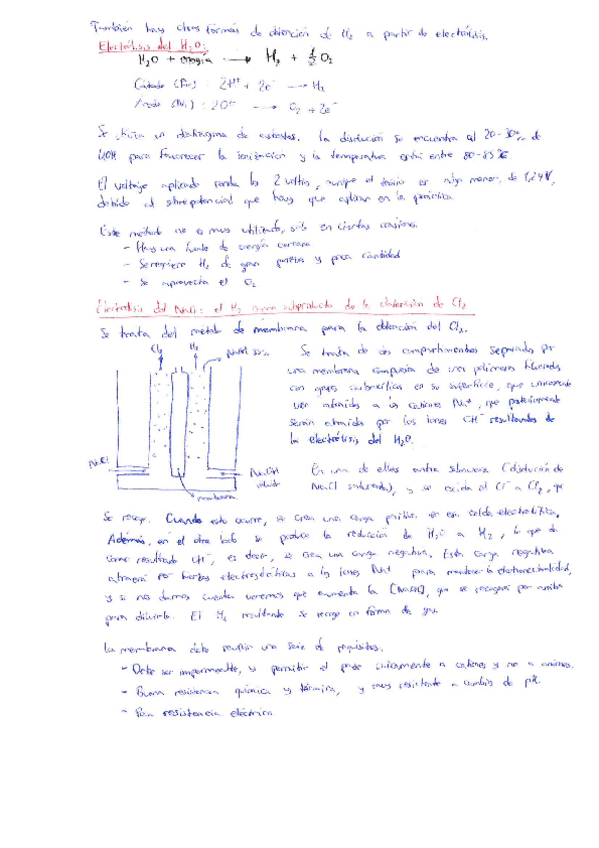 También hay otras formas de obtención de H₂ a partir de electrólisis.
Electrólisis del H₂O:
H₂O + energía → H₂ + ½ O₂
Cátodo (Fe): 2H⁺ + 2e⁻ → H₂
Ánodo (Ni): 2OH⁻ → O₂ + 2e⁻
Se utiliza un diafragma de asbestos. La disolución se encuentra al 20-30% de
KOH para favorecer la ionización y la temperatura está entre 80-85ºC
El voltaje aplicado ronda los 2 voltios, aunque el teórico es algo menor, de 1,24V,
debido al sobrepotencial que hay que aplicar en la práctica.
Este método no es muy utilizado, sólo en ciertas ocasiones.
- Hay una fuente de energía cercana
- Se requiere H₂ de gran pureza y poca cantidad
- Se aprovecha el O₂
Electrólisis del NaCl: el H₂ como subproducto de la obtención de Cl₂
Se trata del método de membrana para la obtención del Cl₂.
Cl₂ H₂ NaOH 35%
Se trata de dos compartimentos separados por
una membrana compuesta de unos polímeros fluorados
con grupos en su superficie, que únicamente
ven atraídos a los cationes Na⁺, que posteriormente
serán atraídos por los iones OH⁻ resultantes de
la electrólisis del H₂O.
NaCl NaOH diluido
membrana
En una de ellas entra salmuera (disolución de
NaCl saturada), y se oxida el Cl⁻ a Cl₂, que
se recoge. Cuando esto ocurre, se crea una carga positiva en esa celda electrolítica.
Además, en el otro lado se produce la reducción de H₂O a H₂, lo que da
como resultado OH⁻, es decir, se crea una carga negativa. Esta carga negativa
atraerá por fuerzas electrostáticas a los iones Na⁺ para mantener la electroneutralidad,
y si nos damos cuenta veremos que aumenta la [NaOH], que se recogerá por arriba
para diluirla. El H₂ resultante se recoge en forma de gas.
La membrana debe reunir una serie de requisitos.
- Debe ser impermeable, y permitir el paso únicamente a cationes y no a aniones.
- Buena resistencia química y térmica, y muy resistente a cambios de pH.
- Poca resistencia eléctrica